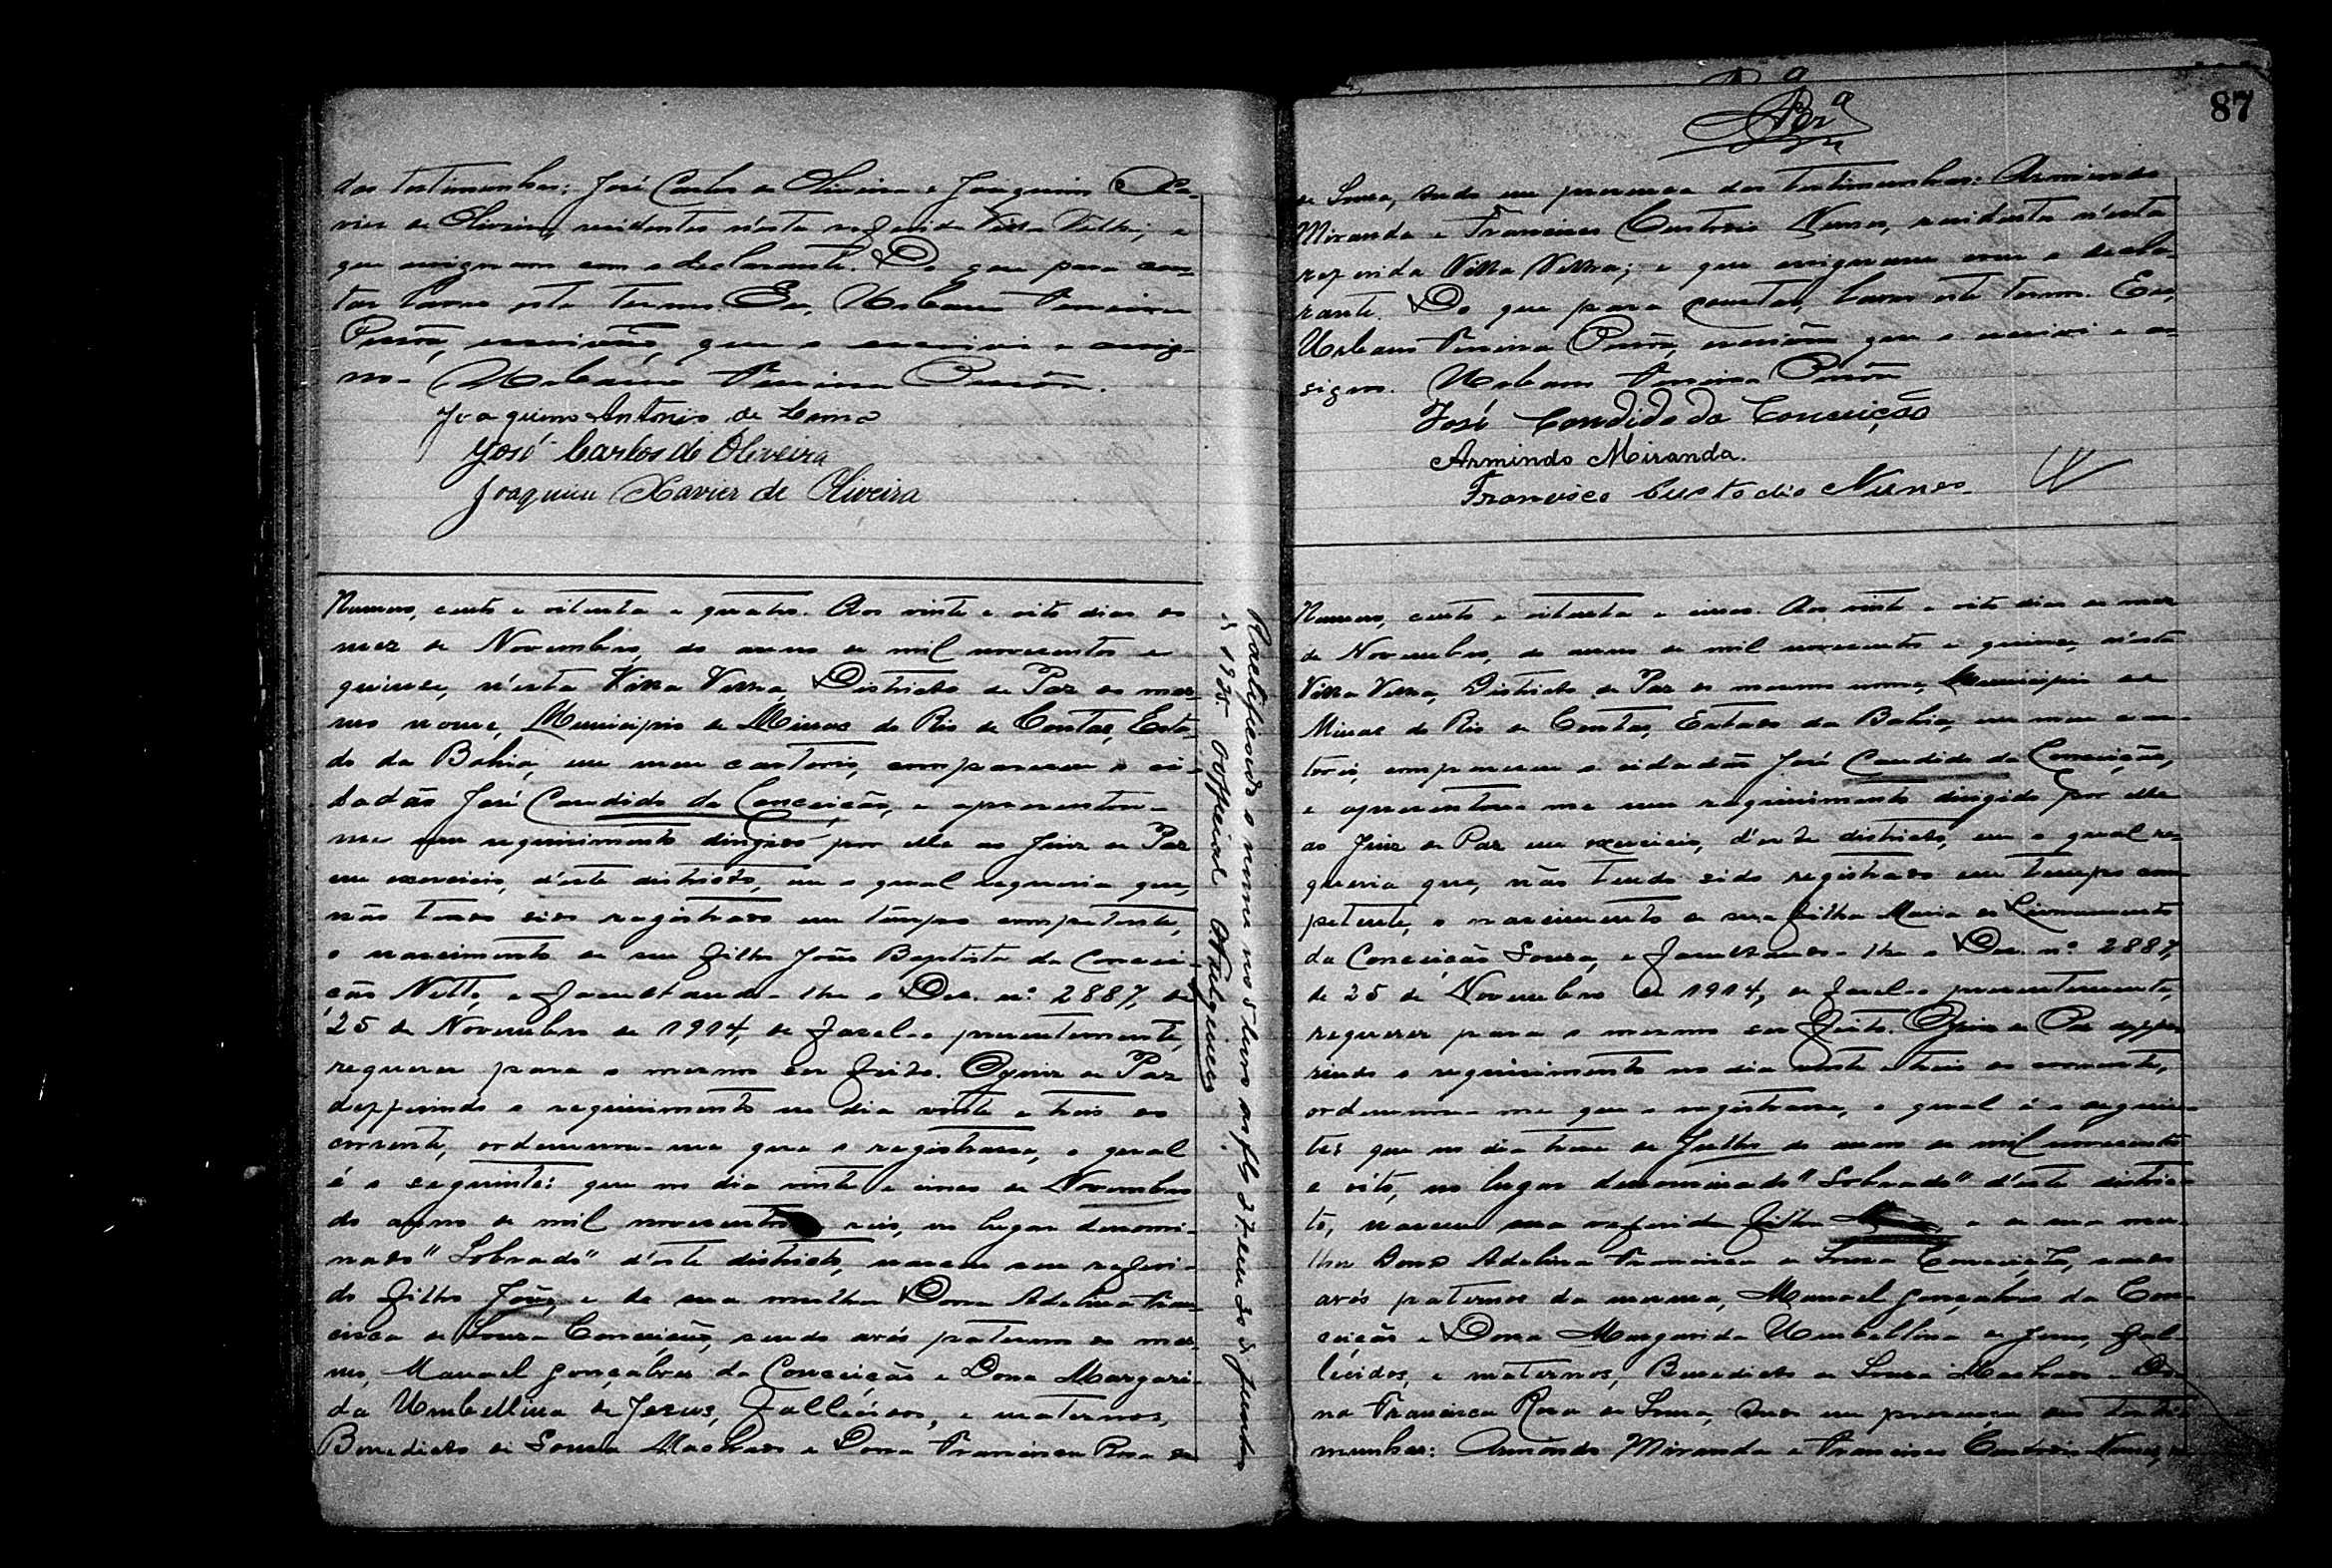 das testemunhas: José Carlos de Oliveira e Joaquim Xa-
vier de Oliveira, residentes n'esta referida Villa Velha; e
que assignam com o declarante. Do que para cons-
tar lavro este termo. Eu, Urbano Pereira
Pessôa, escrivão, que o escrevi e assig-
no. Urbano Pereira Pessôa.
Joaquim Antonio de Lemo
José Carlos de Oliveira
Joaquim Xavier de Oliveira
Numero, cento e oitenta e quatro. Aos vinte e oito dias do
mez de Novembro, do anno de mil novecentos e
quinze, n'esta Villa Velha, Districto de Paz do mes-
mo nome, Municipio de Minas do Rio de Contas, Esta-
do da Bahia, em meu cartorio, compareceu o ci-
dadão José Candido da Conceição, e apresentou-
me um requirimento dirigido por elle ao Juiz de Paz
em exercicio, d'este districto, em o qual requeria que,
não tendo sido registrado em tempo competente,
o nascimento de seu filho João Baptista da Concei-
ção Netto, e facultando-lhe o Dec. nº 2887, de
25 de Novembro de 1914, de fazel-o presentemente,
requerer para o mesmo ser feito. O Juiz de Paz
defferindo o requirimento no dia vinte e tres do
corrente, ordenou-me que o registrasse, o qual
é o seguinte: que no dia vinte e cinco de Novembro
do anno de mil novecentos seis, no lugar denomi-
nado "Sobrado" d'este districto, nasceu seu referi-
do filho João, e de sua mulher Dona Adelina Fran-
cisca de Souza Conceição, sendo avós paternos do mes-
mo, Manoel Gonçalves da Conceição e Dona Margari-
da Umbellina de Jesus, fallecidos, e maternos,
Benedicto de Souza Machado e Dona Francisca Rosa de
Ractificado o nome no 5 livro as fls 27 em 30 de junho
de 1925. O official
87
de Souza, tudo em presença das testimunhas: Armindo
Miranda e Francisco Custodio Nunes, residentes n'esta
referida Villa Velha; e que assignam com o decla-
rante. Do que para constar, lavro este termo. Eu,
Urbano Pereira Pessôa, escrivão que o escrevi e as-
signo. Urbano Pereira Pessôa
José Candido da Conceição
Armindo Miranda.
Francisco Custodio Nunes
Numero, cento e oitenta e cinco. Aos vinte e oito dias do mez
de Novembro, do anno de mil novecentos e quinze, n'esta
Villa Velha, Districto de Paz do mesmo nome, Municipio de
Minas do Rio de Contas, Estado da Bahia, em meu car-
torio, compareceu o cidadão José Candido da Conceição,
e apresentou-me um requirimento dirigido por elle
ao Juiz de Paz em exercicio, d'este districto, em o qual re-
queria que, não tendo sido registrado em tempo com-
petente, o nascimento de sua filha Maria do Livramento
da Conceição Souza, e facultando-lhe o Dec. nº 2887,
de 25 de Novembro de 1914, de fazel-o presentemente,
requerer para o mesmo ser feito. O Juiz de Paz deffe-
rindo o requirimento no dia vinte e tres do corrente,
ordenou-me que o registrasse, o qual é o seguin-
te: que no dia treze de Julho do anno de mil novecentos
e oito, no lugar denominado "Sobrado" d'este distric-
to, nasceu sua referida filha e de sua mu-
lher Dona Adelina Francisca de Souza Conceição, sendo
avós paternos da mesma, Manoel Gonçalves da Con-
ceição e Dona Margarida Umbellina de Jesus, fal-
lecidos, e maternos, Benedicto de Souza Machado e Do-
na Francisca Rosa de Souza, tudo em presença das testi-
munhas: Armindo Miranda e Francisco Custodio Nunes,